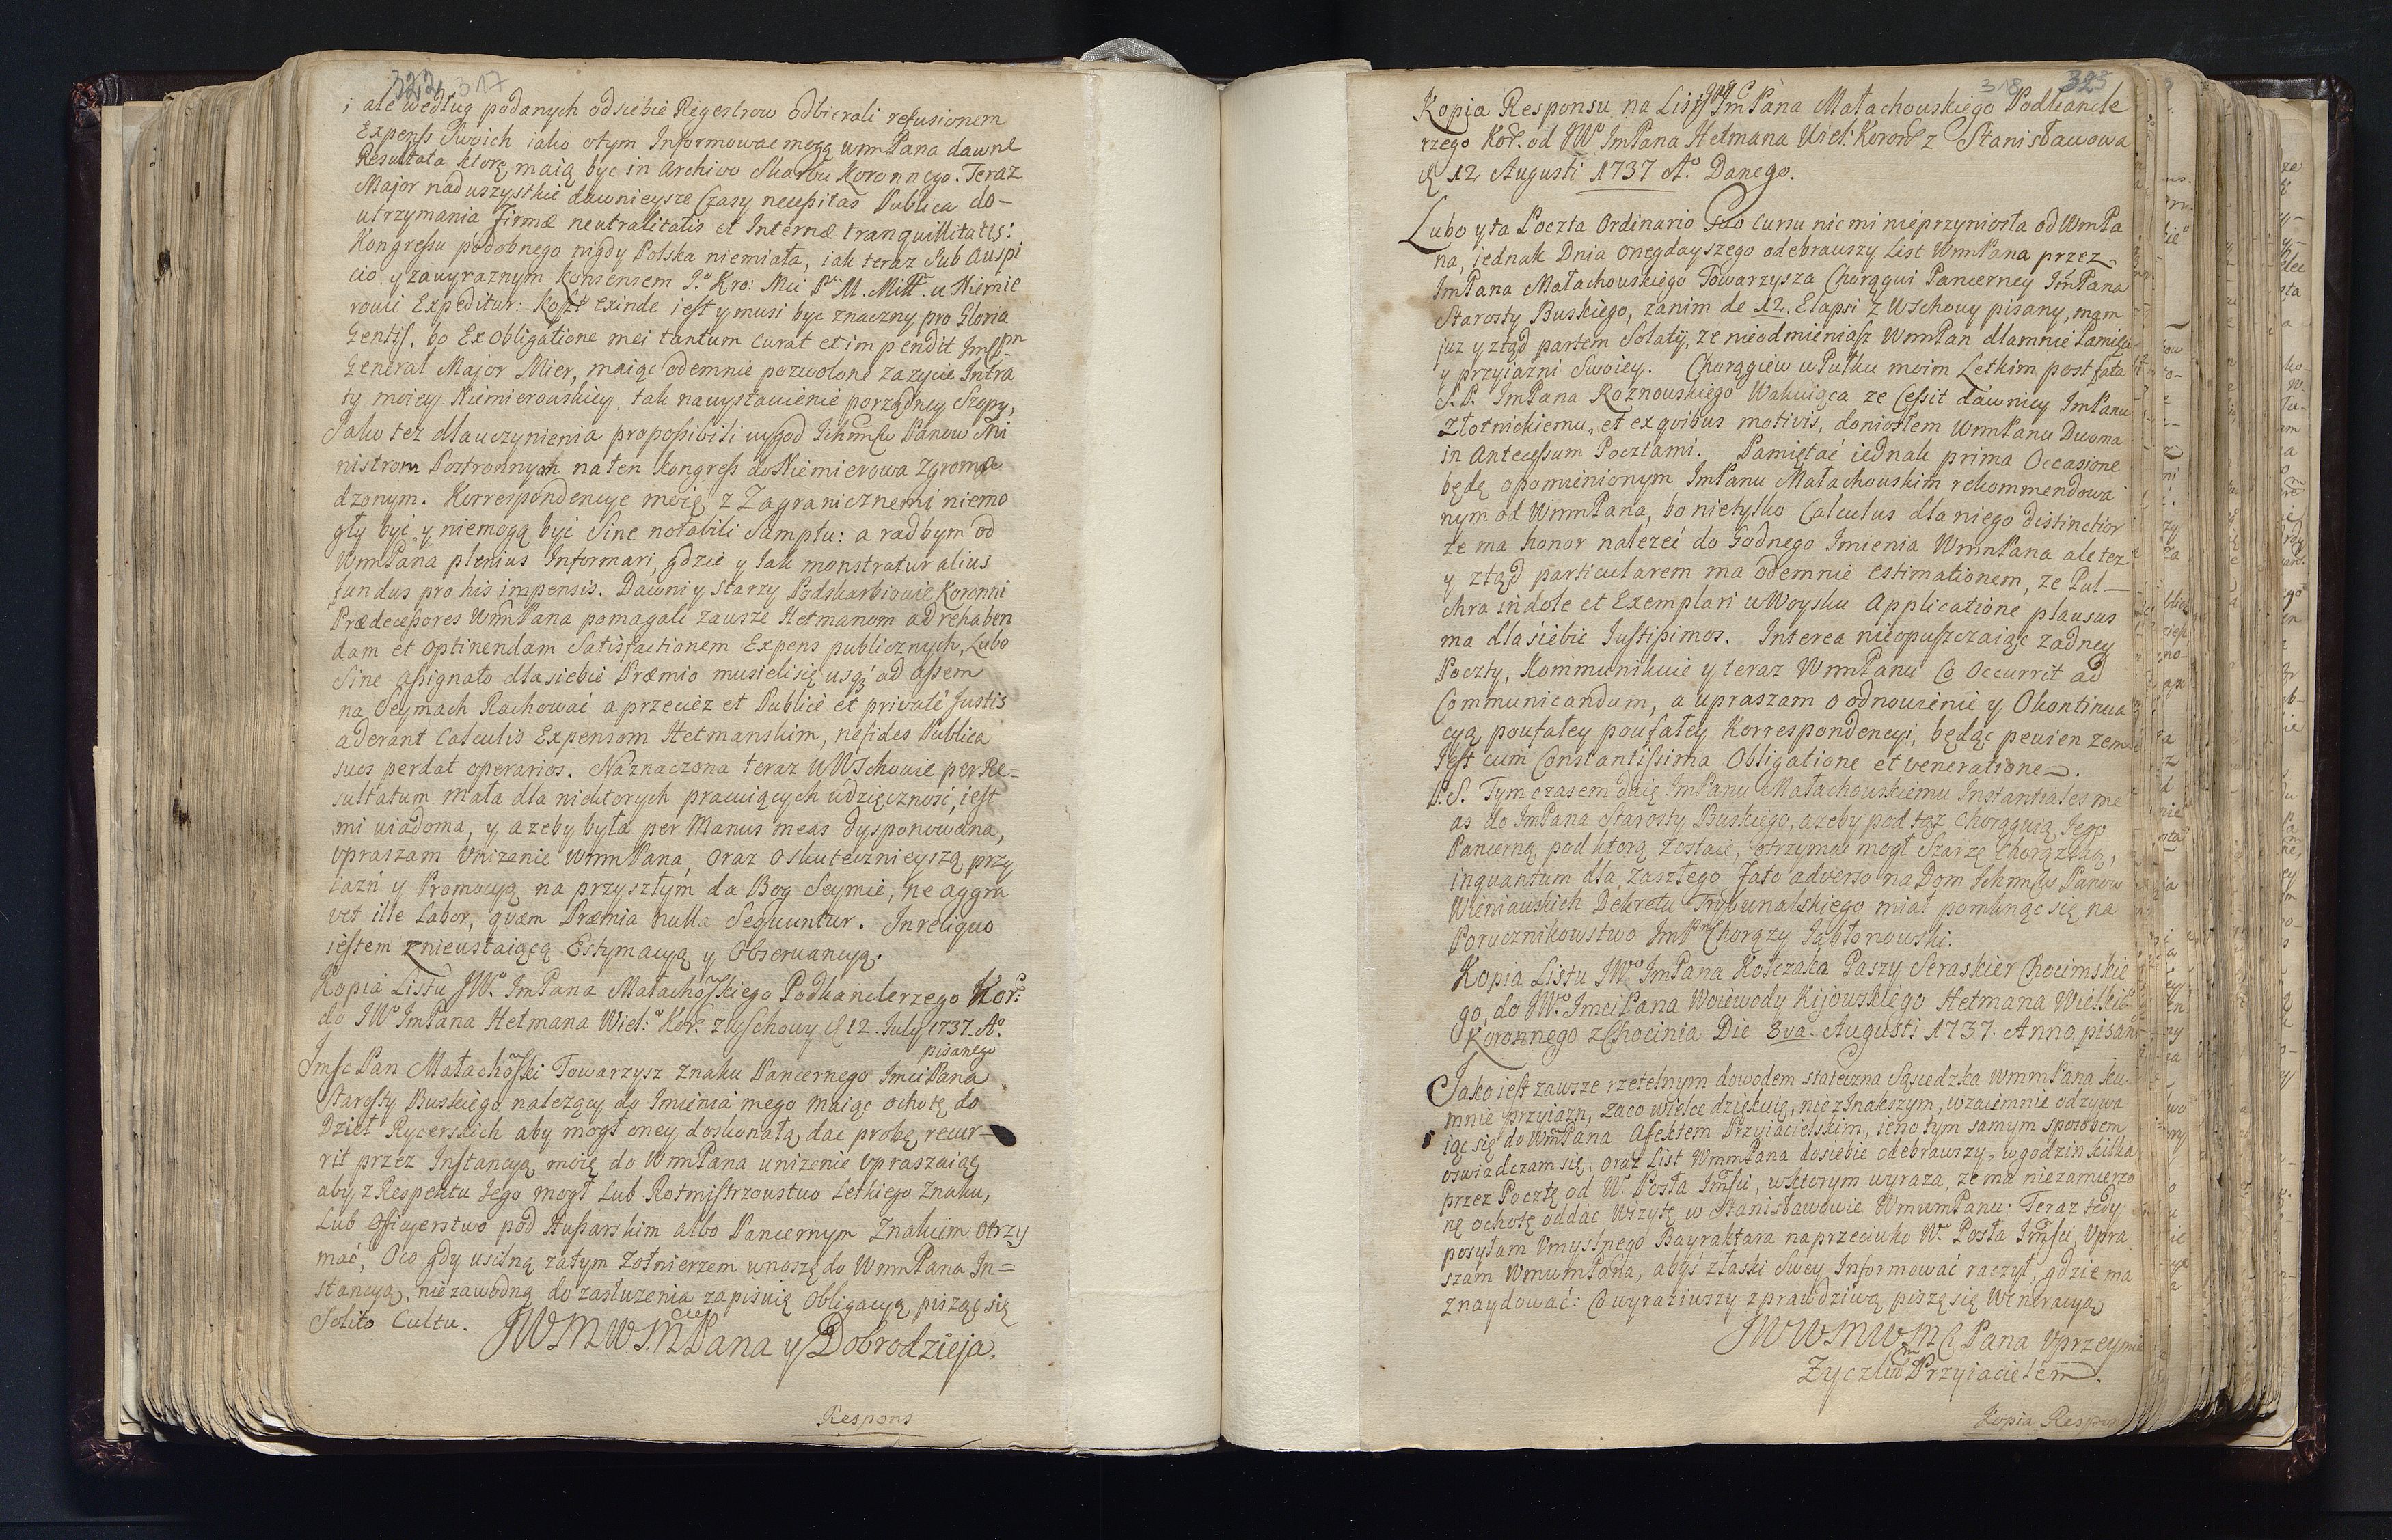 322 317
i ale według podanych od siebie Regestrow odbierali refusionem
Expenss Swoich iako otym Informowac mogą WmmPana dawne
Resultata ktore maią byc in Archivo Skarbu Koronnego. Teraz
Major nad uszystkie dawnieysze Czasy necessitas Publica do-
utrzymania firmæ neutralitatis et Internæ tranquillitatis:
Kongressu podobnego nigdy Polska niemiała, iak teraz Sub Auspi
cio y zawyraznym Konsensem J.º Kro: Mci u Niemie
rowie Expeditur: Koszt exinde iest y musi byc znaczny pro Gloria
Gentis, bo Ex Obligatione mei tantum curat et impendit Jmsc Pn
General Major Mier, maiąc odemnie pozwolone zazycie Intra
ty moiey Niemierowskiey, tak na wystawienie porządney Szopy,
Jako tez dla uczynienia pro possibili wygod Ichmsc Panow Mi
nistrom Postronnym na ten Kongress do Niemierowa zgroma
dzonym. Korrespondencye moię z Zagranicznemi niemo
gły być, y niemogą być Sine notabili Sumptu: a radbym od
WmmPana plenius Informari, gdzie y Jak monstratur alius
fundus pro his impensis. Dawni y starzy Podskarbiowie Koronni
Prædecessores WmPana pomagali zausze Hetmanom ad rehaben
dam et optinendam Satisfactionem Expens publicznych, Lubo
Sine assignato dla siebie Præmio musieli się usq; ad assem
na Seymach Rachować a przecież et Publicè et privatè Justis
aderant Calculis Expensom Hetmanskim, ne fides Publica
suos perdat operarios. Naznaczona teraz w Wschowie per Re-
sultatum mała dla niektorych pracuiących wdzięczność, iest
mi wiadoma, y azeby była per Manus meas dysponowana,
Vpraszam Vnizenie WmmPana, Oraz o skutecznieyszą przy
iaźń y Promocyą na przyszłym da Bog Seymie, ne aggra
vet ille Labor, quem Præmia nulla Sequuntur. In reliquo
iestem z nieustaiącą Estymacyą y Obserwancyą.
Kopia Listu JWº JmPana Małachoskiego Podkanclerzego Kor:
do JWº JmPana Hetmana Wiel: Kor. z Wschowy d 12 July 1737. Aº.
pisanego
Jmsc Pan Małachoski Towarzysz znaku Pancernego Jmci Pana
Starosty Buskiego nalezący do Imienia mego maiąc ochotę do
Dzieł Rycerskich aby mogł oney doskonałą dac probę recur-
rit przez Instancyą moię do WmmPana unizenie Vpraszaiąc
aby z Respektu Jego mogł Lub Rotmistrzowstwo Letkiego Znaku,
Lub Officyerstwo pod Hussarskim albo Pancernym Znakiem otrzy
mać, Oco gdy usilną zatym Zołnierzem wnoszę do WmmPana In=
stancyą, niezawodną do zasłuzenia zapisuię Obligacyą, pisząc się
Solito Cultu.
JWMWMPana y Dobrodzieja.
Respons
318 323
Kopia Responsu na List JW JmPana Małachowskiego Podkancle
rzego Kor. od JWº JmPana Hetmana Wiel: Koron: z Stanisławowa
d 12 Augusti 1737 Aº. Danego.
Lubo y ta Poczta Ordinario Suo cursu nic mi nieprzyniosła od WmPa
na, jednak Dnia onegdayszego odebrawszy List WmmPana przez
JmPana Małachowskiego Towarzysza Chorągwi Pancerney JmPana
Starosty Buskiego, zanim de 12. Elapsi z Wschowy pisany, mam
juz y ztąd partem Solaty, ze nieodmieniasz WmmPan dlamnie Pamięci
y przyiazni Swoiey. Chorągiew w Pułku moim Letkim post fata
S.P. JmPana Roznowskiego Wakuiąca ze Cessit dawniey JmPanu
Złotnickiemu, et ex quibus motivis, doniosłem WmmPanu Dwoma
in Antecessum Pocztami. Pamiętać iednak prima Occasione
będę opomienionym JmPanu Małachowskim rekommendowa
nym od WmmPana, bo nietylko Calculus dla niego distinctior
ze ma honor nalezeć do Godnego Imienia WmmPana ale tez
y ztąd particularem ma odemnie estimationem, ze Pul-
chra indole et Exemplari w Woysku Applicatione plausus
ma dla siebie Justissimos. Interea nieopuszczaiąc zadney
Poczty, Kommunikuie y teraz WmmPanu Co Occurrit ad
Communicandum, a upraszam o odnowienie y Okontinua
cyą poufałey poufałey Korrespondencyi, będąc pewien zem
Jest cum Constantissima Obligatione et veneratione.
P.S. Tym czasem daię JmPanu Małachowskiemu Instantiales me
as do JmPana Starosty Buskiego, azeby pod taz Chorągwią Jego
Pancerną pod ktorą zostaie, otrzymac mogł Szarzę Chorąztwa,
inquantum dla, zaszłego fato adverso na Dom Ichmsc Panow
Wieniawskich Dekretu Trybunalskiego miał pomknąc się na
Porucznikowstwo JmPn Chorązy Jabłonowski.
Kopia Listu JWº JmPana Kołczaka Paszy Seraskier Chocimskie
go, do JWº Jmci Pana Woiewody Kijowskiego Hetmana Wielkiego
Koronnego z Chocimia Die 3va. Augusti 1737. Anno pisan
Jako jest zawsze rzetelnym dowodem stateczna Sąsiedzka WmmPana ku
mnie przyiazn, za co wielce dziękuię, nie z Inakszym, wzaiemnie odzywa
iąc się do WmPana Afektem Przyiacielskim, ieno tym samym sposobem
oswiadczam się, oraz List WmmPana do siebie odebrawszy, w godzin kilka
przez Pocztę od Wº Posła Jmsci, wktorym wyraza, ze ma niezamierzo
nę ochotę oddać Wizytę w Stanisławowie WmwmPanu; Teraz tedy
posyłam Vmyslnego Bayraktara naprzeciwko Wº Posła Jmsci, Vpra
szam WmwmPana, abyś z łaski Swey Informować raczył, gdzie ma
znaydować: Co wyraziwszy z prawdziwą piszę się Weneracyą
JWWMWM Pana Vprzeymie
Zyczliwm Przyiacielem.
Kopia Respon